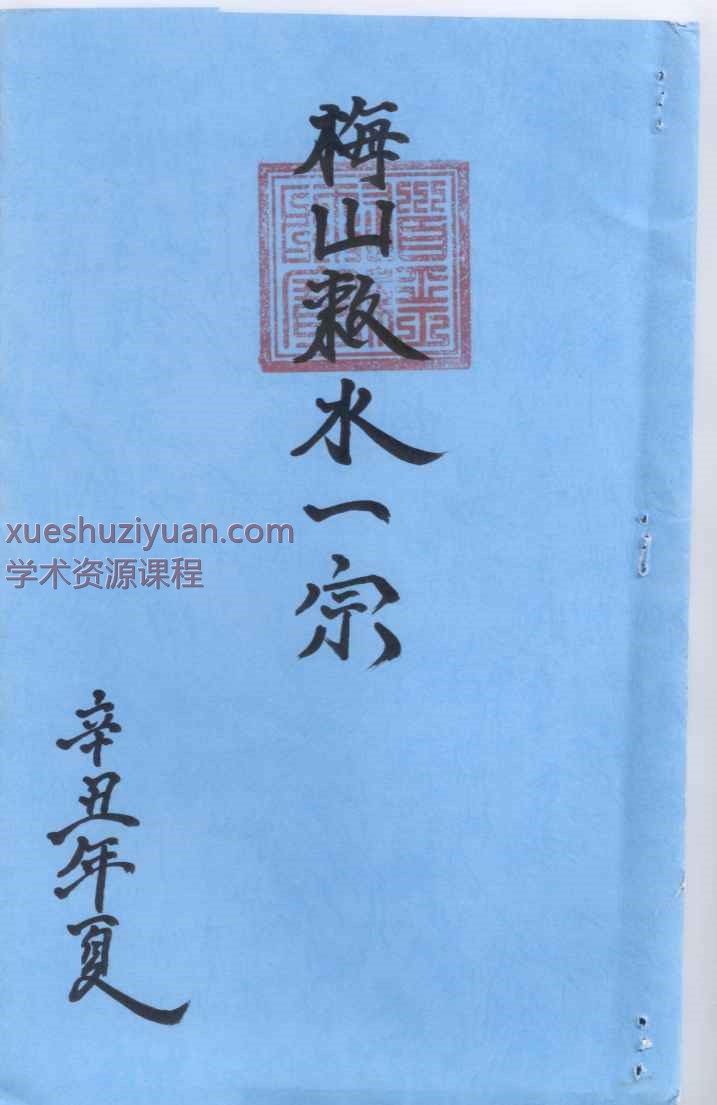 梅山敕水一宗
辛丑年夏
xueshuziyuan.com
学术资源课程